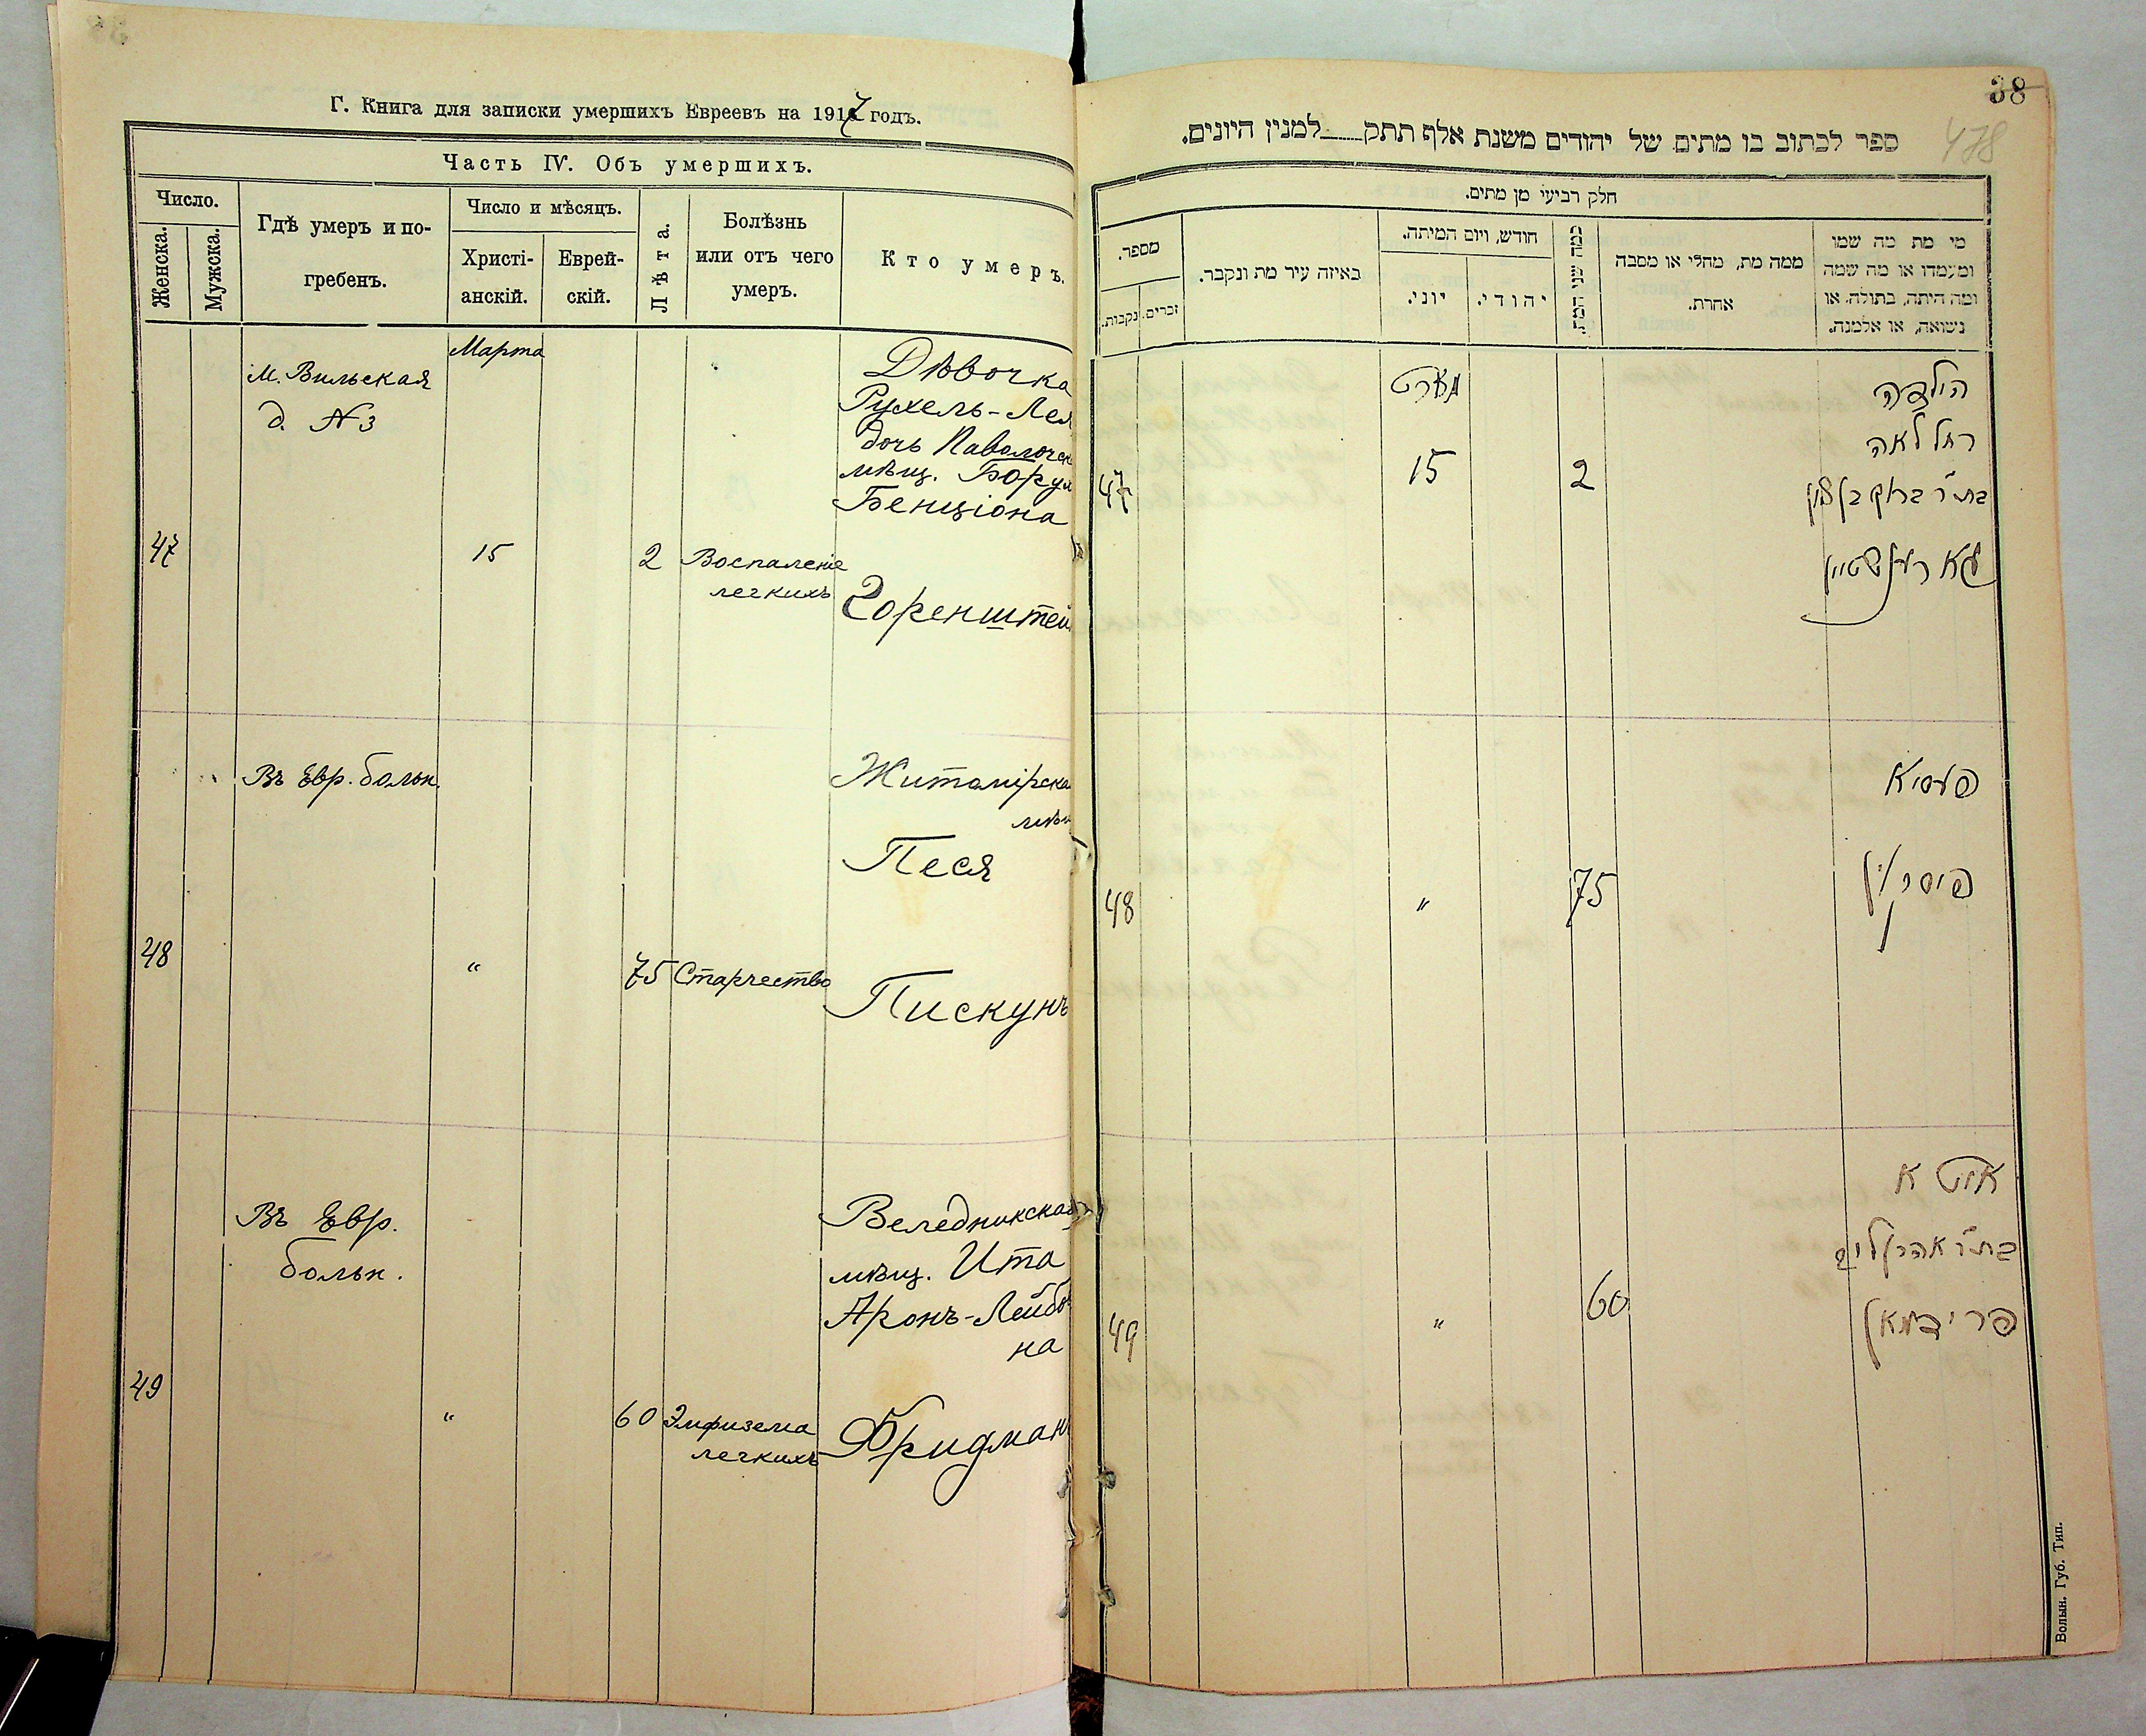 Г. Книга для записки умершихъ Евреевъ на 1917 годъ.
Часть IV. Объ умершихъ.
Число.
Женска.
Мужска.
Гдѣ умеръ и по-
гребенъ.
Число и мѣсяцъ.
Христі-
анскій.
Еврей-
скій.
Лѣта.
Болѣзнь
или отъ чего
умеръ.
Кто умеръ.
Марта
М. Вильская
д. № 3
47
15
2
Воспаленіе
легкихъ
Дѣвочка
Рухель-Лея
дочь Паволочск
мѣщ. Борух
Бенціона
Горенштей
Въ Евр. больн.
48
"
75
Старчество
Житомірска
мѣщ
Песя
Пискунъ
Въ Евр.
больн.
49
"
60
Эмфизема
легкихъ
Веледникская
мѣщ. Ита
Аронъ-Лейбов
на
Фридманъ
38
478
ספר לכתוב בו מתים של יהודים משנת אלף תתק למנין היונים.
חלק רביעי מן מתים.
מספר.
נקבות.
זכרים.
באיזה עיר מת ונקבר.
חודש, ויום המיתה.
יוני.
יהודי.
כמה שני המת
ממה מת, מחלי או מסבה
אחרת.
מי מת מה שמו
ומעמדו או מה שמה
ומה היתה, בתולה או
נשואה, או אלמנה.
מארט
47
15
2
הילדה
רחל לאה
בת ר' ברוך בן ציון
גארענשטיין
48
"
75
פעסיא
פיסקון
49
"
60
איטא
בת ר' אהרן לייב
פרידמאן
Волын. Губ. Тип.